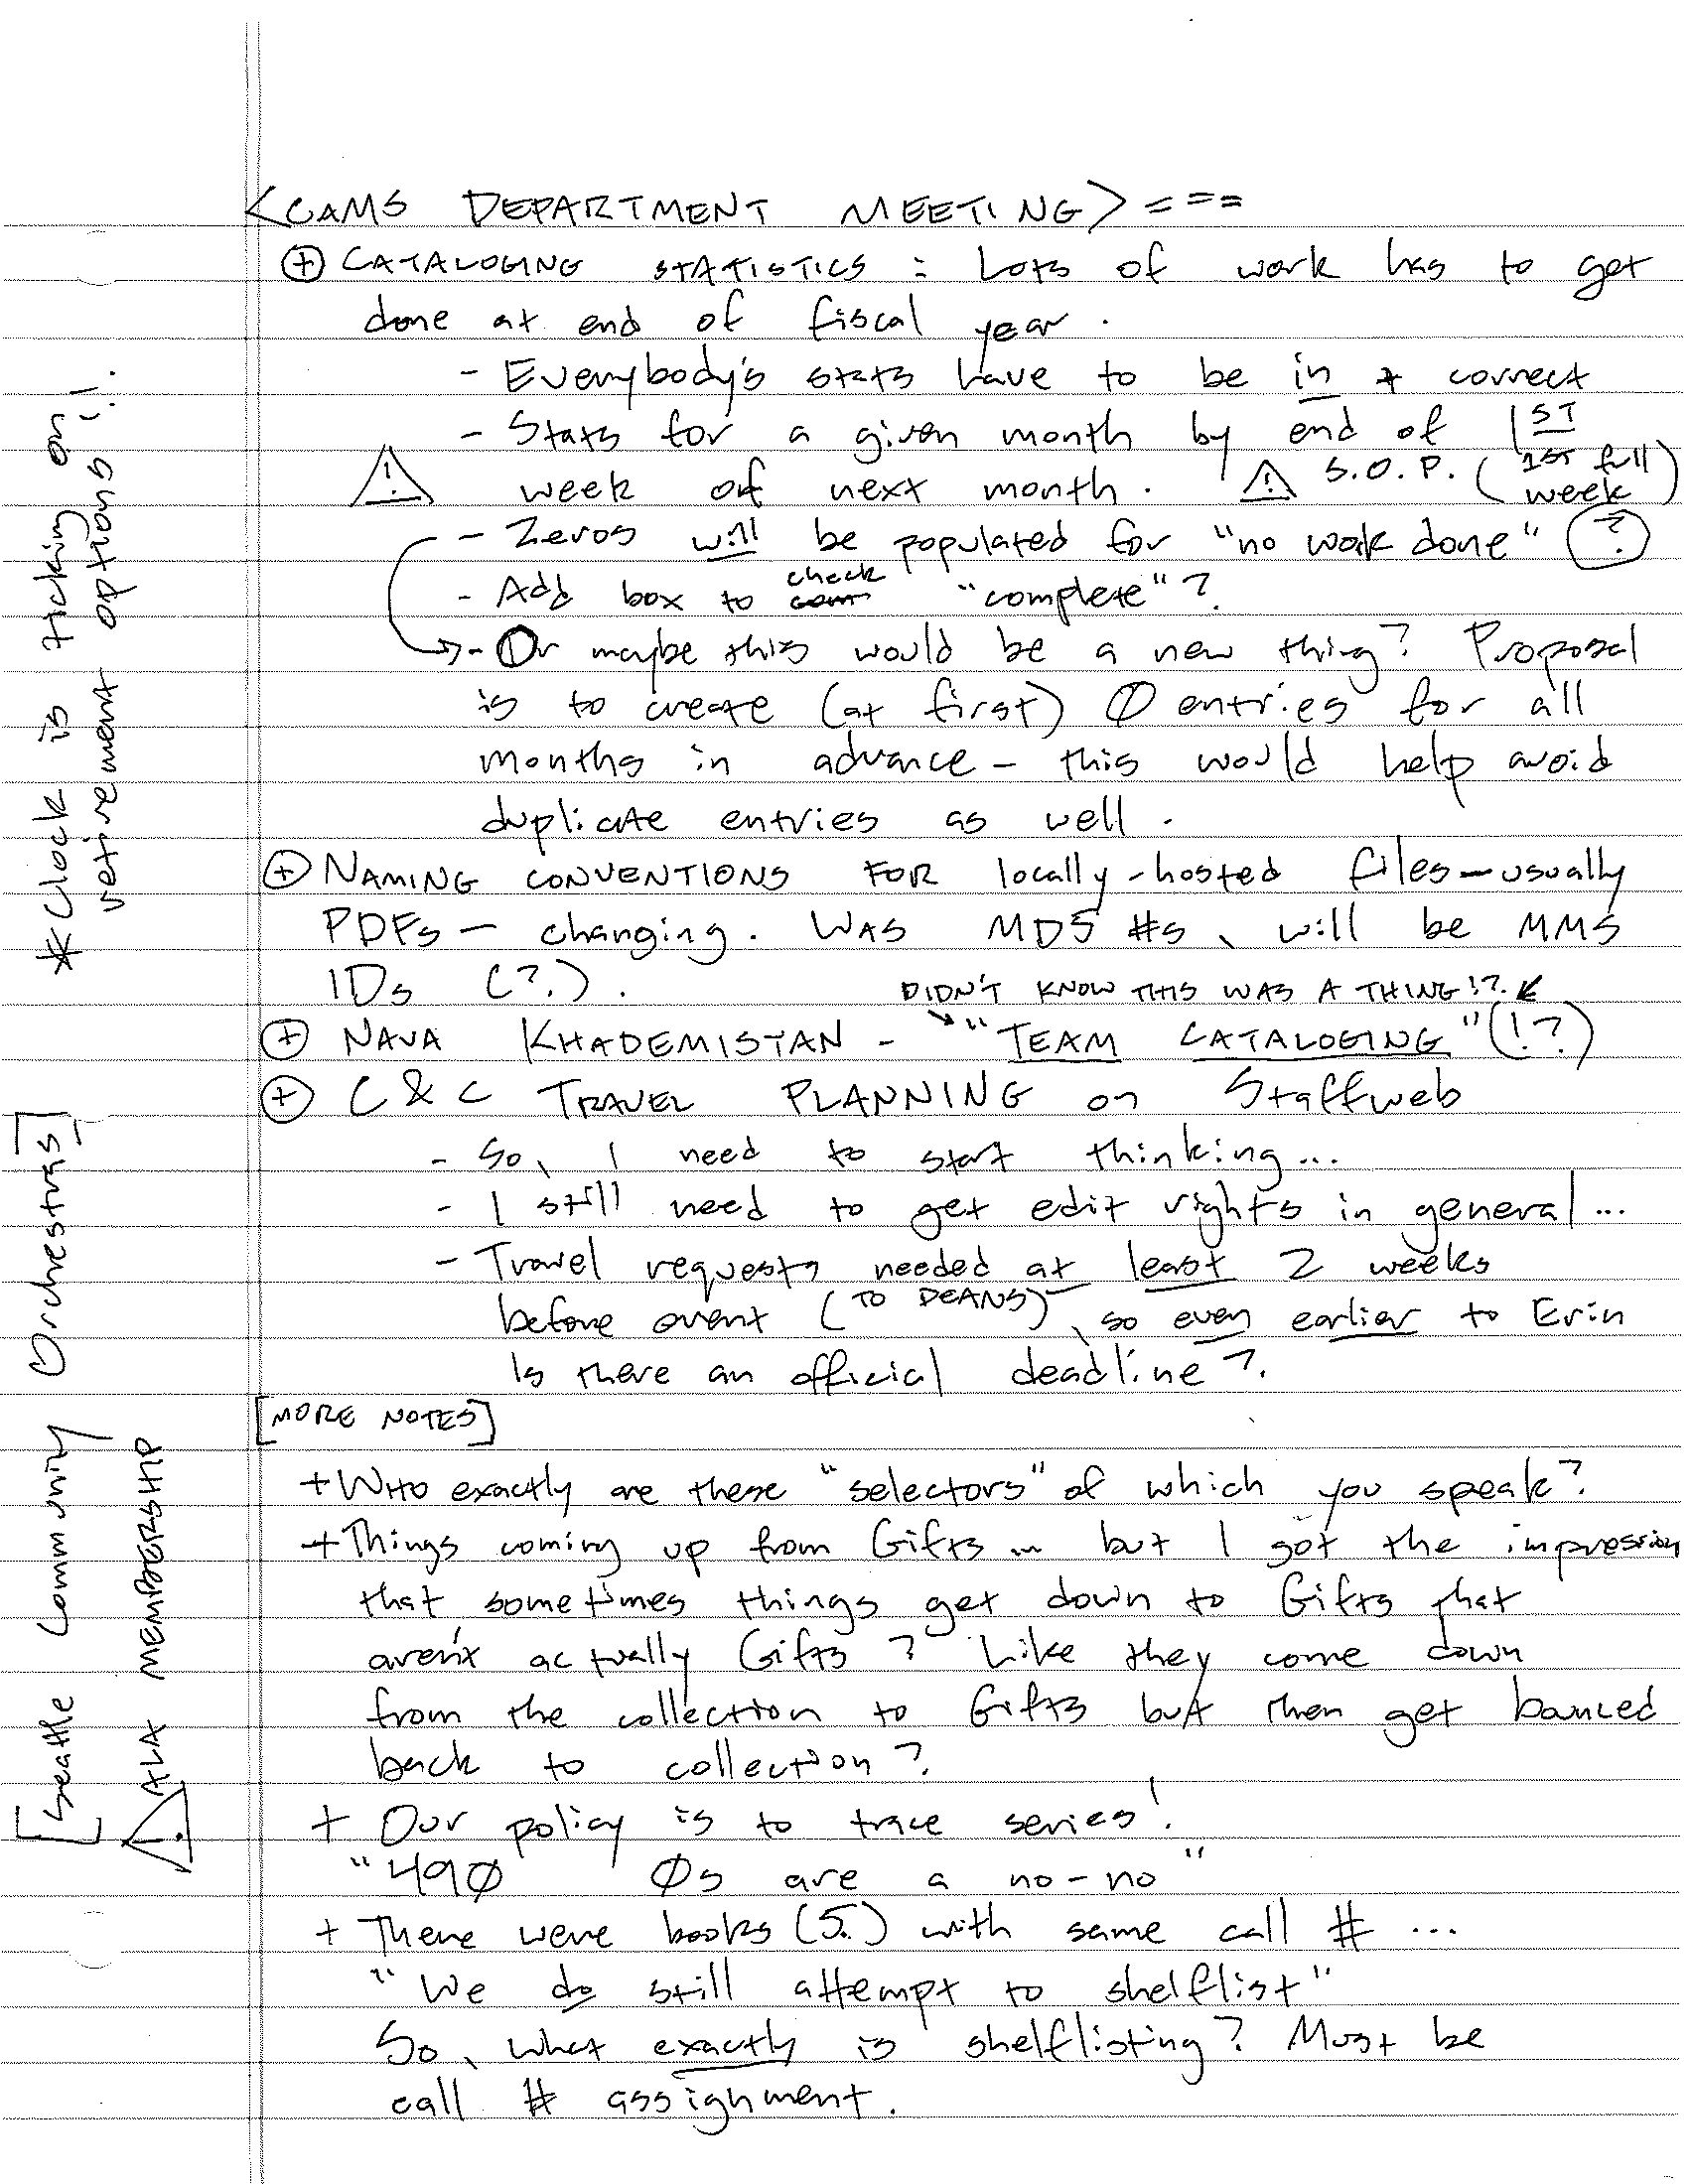 <CAMS DEPARTMENT MEETING> ===
⊕ CATALOGING STATISTICS : Lots of work has to get
done at end of fiscal year.
- Everybody's stats have to be in + correct
- Stats for a given month by end of 1ST
week of next month. ⚠ S.O.P. (1ST full week)
- Zeros will be populated for "no work done" (?)
- Add box to check "complete"?
→ - Or maybe this would be a new thing? Proposal
is to create (at first) Ø entries for all
months in advance - this would help avoid
duplicate entries as well.
⊕ NAMING CONVENTIONS FOR locally-hosted files - usually
PDFs - changing. WAS MD5 #s, will be MMS
IDs (?).
DIDN'T KNOW THIS WAS A THING!?
⊕ NAVA KHADEMISTAN - "TEAM CATALOGING" (!?)
⊕ C & C TRAVEL PLANNING on Staffweb
- So, I need to start thinking...
- I still need to get edit rights in general...
- Travel requests needed at least 2 weeks
before event (TO DEANS), so even earlier to Erin
Is there an official deadline?
[MORE NOTES]
+ WHO exactly are these "selectors" of which you speak?
+ Things coming up from Gifts ... but I got the impression
that sometimes things get down to Gifts that
aren't actually Gifts? Like they come down
from the collection to Gifts but then get bounced
back to collection?
+ Our policy is to trace series!
"49Ø Øs are a no-no"
+ There were books (5?) with same call # ...
"We do still attempt to shelflist"
So, what exactly is shelflisting? Must be
call # assignment.
* Clock is ticking on
retirement options!!
[Seattle Community Orchestras]
⚠ ALA MEMBERSHIP